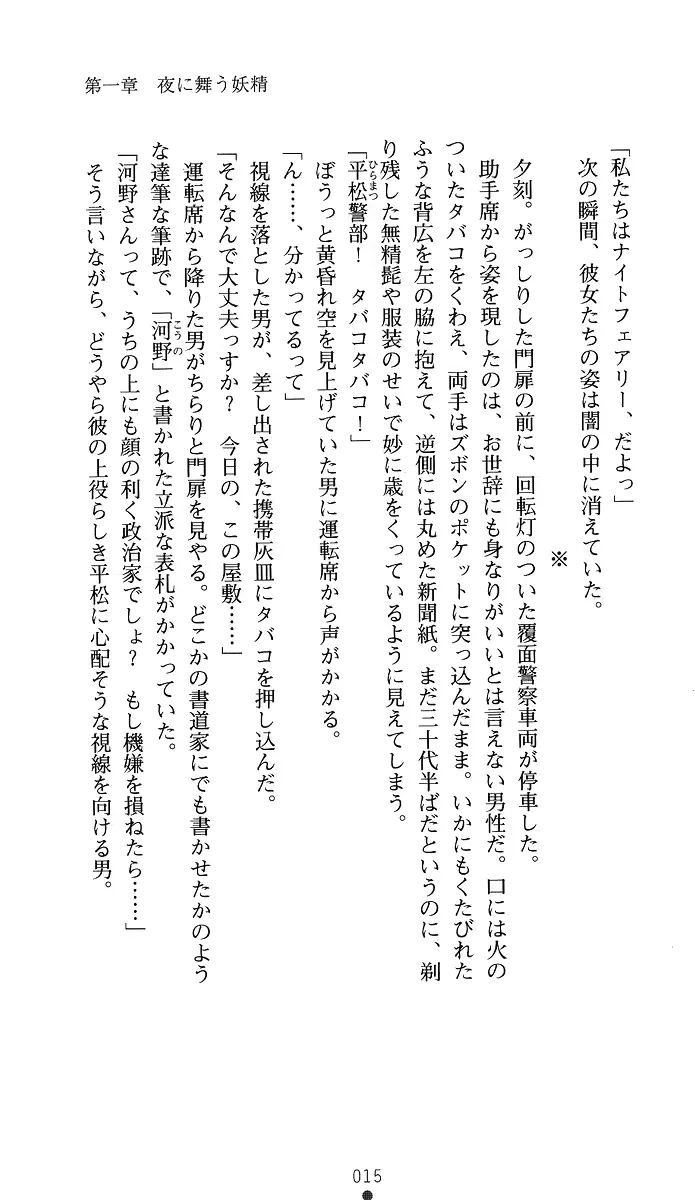 第一章　夜に舞う妖精
「私たちはナイトフェアリー、だよっ」
次の瞬間、彼女たちの姿は闇の中に消えていた。
※
夕刻。がっしりした門扉の前に、回転灯のついた覆面警察車両が停車した。
助手席から姿を現したのは、お世辞にも身なりがいいとは言えない男性だ。口には火の
ついたタバコをくわえ、両手はズボンのポケットに突っ込んだまま。いかにもくたびれた
ふうな背広を左の脇に抱えて、逆側には丸めた新聞紙。まだ三十代半ばだというのに、剃
り残した無精髭や服装のせいで妙に歳をくっているように見えてしまう。
「平松警部！　タバコタバコ！」
ひらまつ
ぼうっと黄昏れ空を見上げていた男に運転席から声がかかる。
「ん……、分かってるって」
視線を落とした男が、差し出された携帯灰皿にタバコを押し込んだ。
「そんなんで大丈夫っすか？　今日の、この屋敷……」
運転席から降りた男がちらりと門扉を見やる。どこかの書道家にでも書かせたかのよう
な達筆な筆跡で、「河野」と書かれた立派な表札がかかっていた。
こうの
「河野さんって、うちの上にも顔の利く政治家でしょ？　もし機嫌を損ねたら……」
そう言いながら、どうやら彼の上役らしき平松に心配そうな視線を向ける男。
015